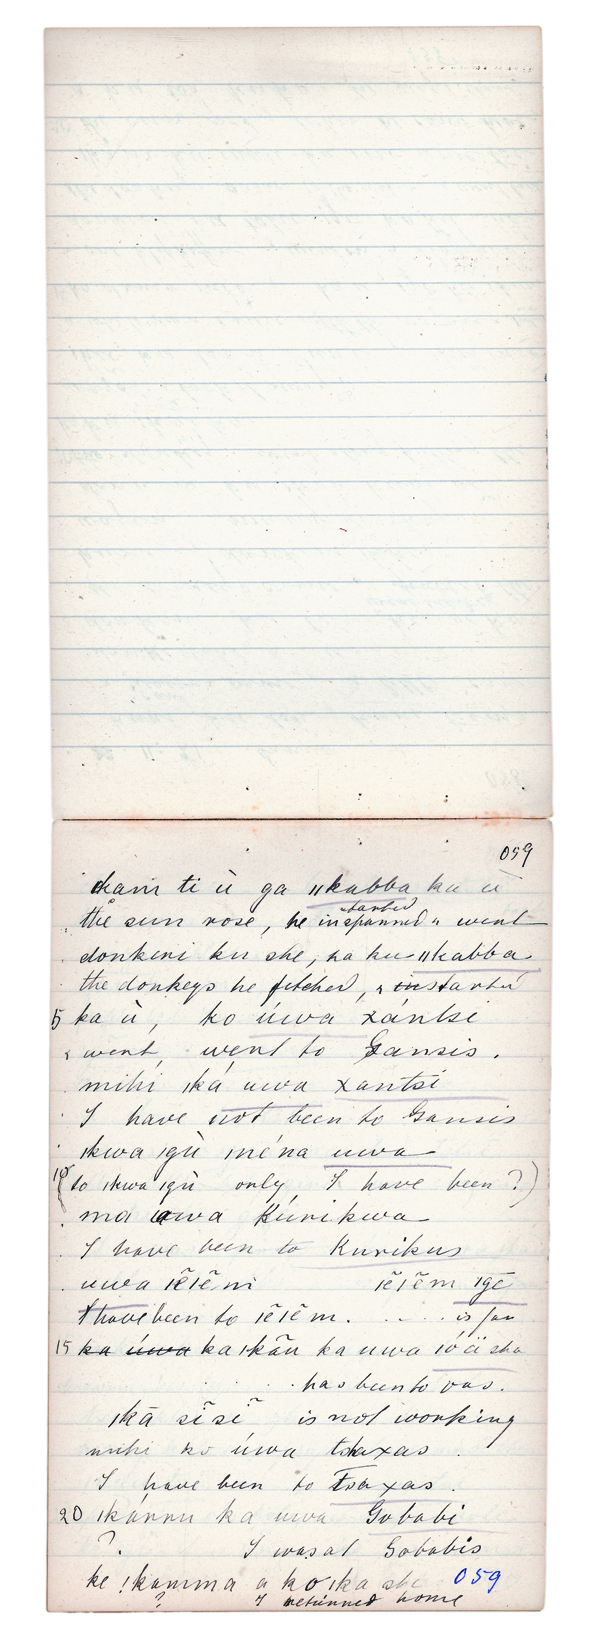 059
ǀkam ti ù ga ǁkabba ka ù
the sun rose, he inspanned started & went
donkeni ku she, ha ku ǁkabba
the donkeys he fetched, & started
5 ka ù, ko úwa xántsi
& went, went to Gansis.
mihi ǀká uwa xantsi
I have not been to Gansis
ǀkwa ǀgù ǀnéna uwa
10 (to ǀkwa ǀgù only I have been?)
ma uwa Kúrikwa
I have been to Kurikus
uwa ǀẽǀẽm ǀẽǀẽm ǀgẽ
I have been to ǀẽǀẽm. . . . . is far
15 ka úwa ka ǀkãu ka uwa ǀóä sha
has been to oas.
ǀkã sĩsĩ is not working
mihi ko úwa tsaxas
I have been to Tsaxas.
20 ǀkánnu ka uwa Gobabi
? I was at Gobabis
ke !kamma a ko ǀka she 059
? I returned home